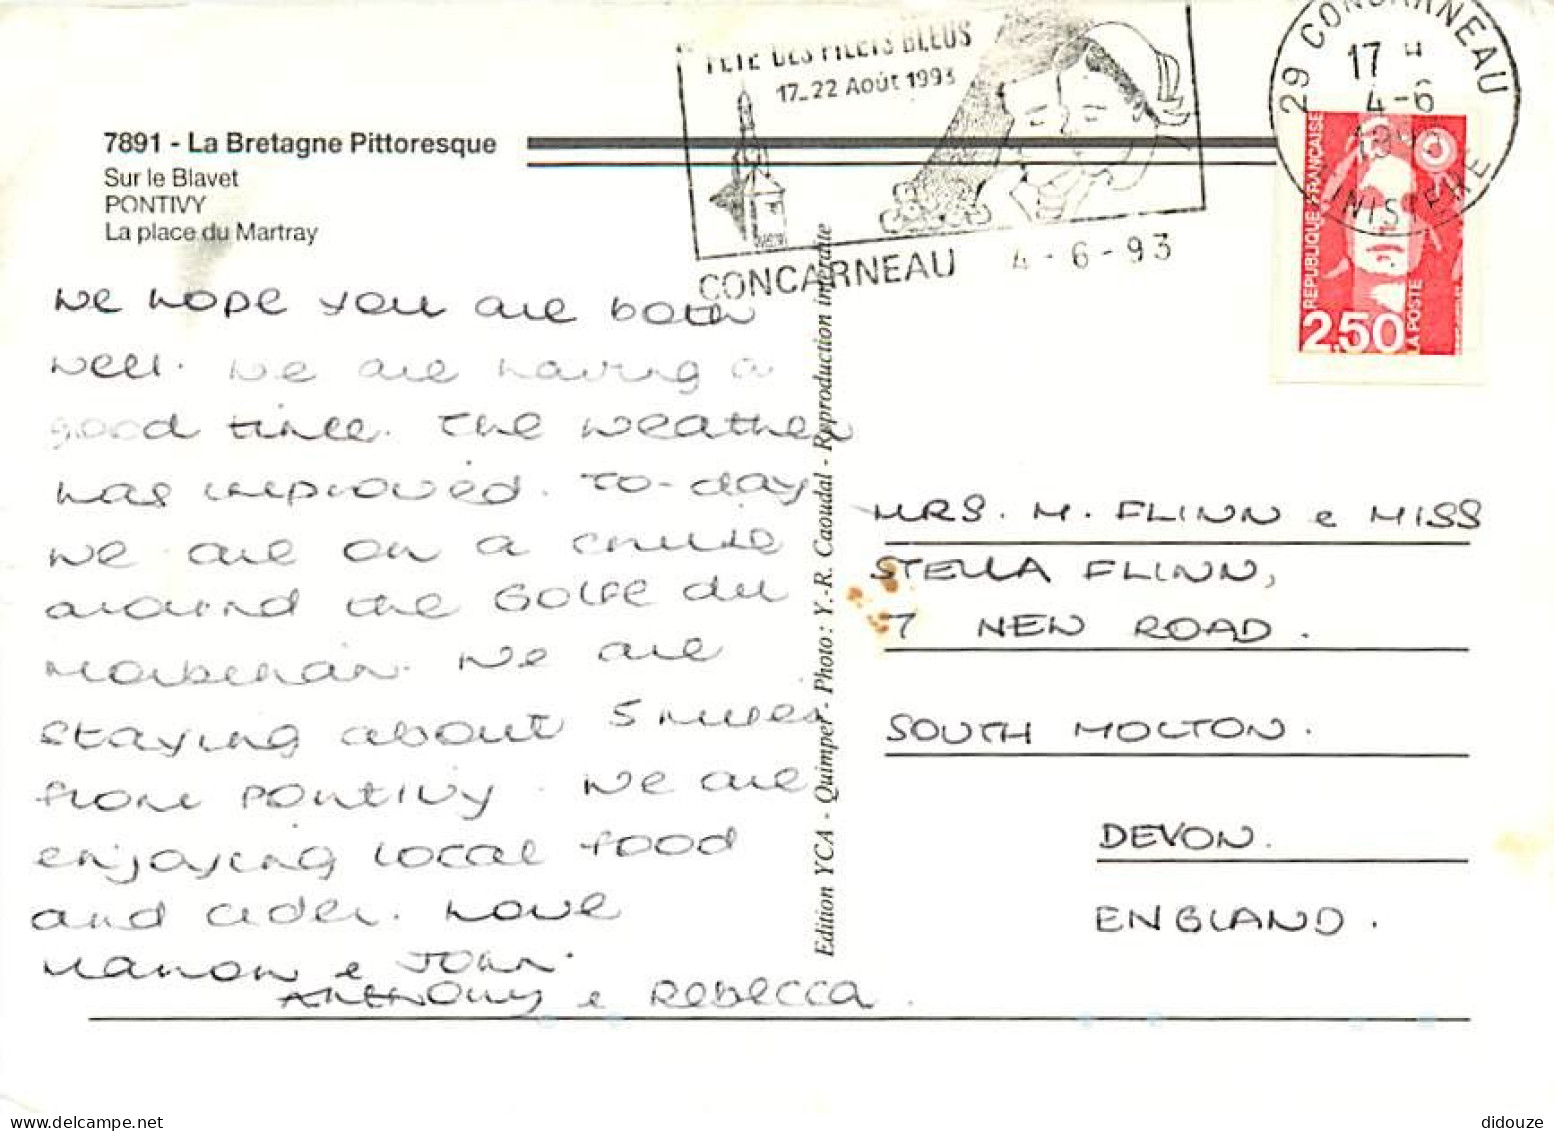 FETE DES FILETS BLEUS
17-22 Août 1993
CONCARNEAU 4-6-93
29 CONCARNEAU
17 H
4-6
1993
FINISTERE
REPUBLIQUE FRANÇAISE
2,50
LA POSTE
7891 - La Bretagne Pittoresque
Sur le Blavet
PONTIVY
La place du Martray
We hope you are both
well. We are having a
good time. The weather
has improved. To-day
we are on a cruise
around the Golfe du
Morbihan. We are
staying about 5 miles
from Pontivy. We are
enjoying local food
and cider. Love
Marion & John.
Anthony & Rebecca.
Edition YCA - Quimper - Photo : Y.-R. Caoudal - Reproduction interdite
MRS. M. FLINN & MISS
STELLA FLINN,
7 NEW ROAD.
SOUTH MOLTON.
DEVON.
ENGLAND.
didouze